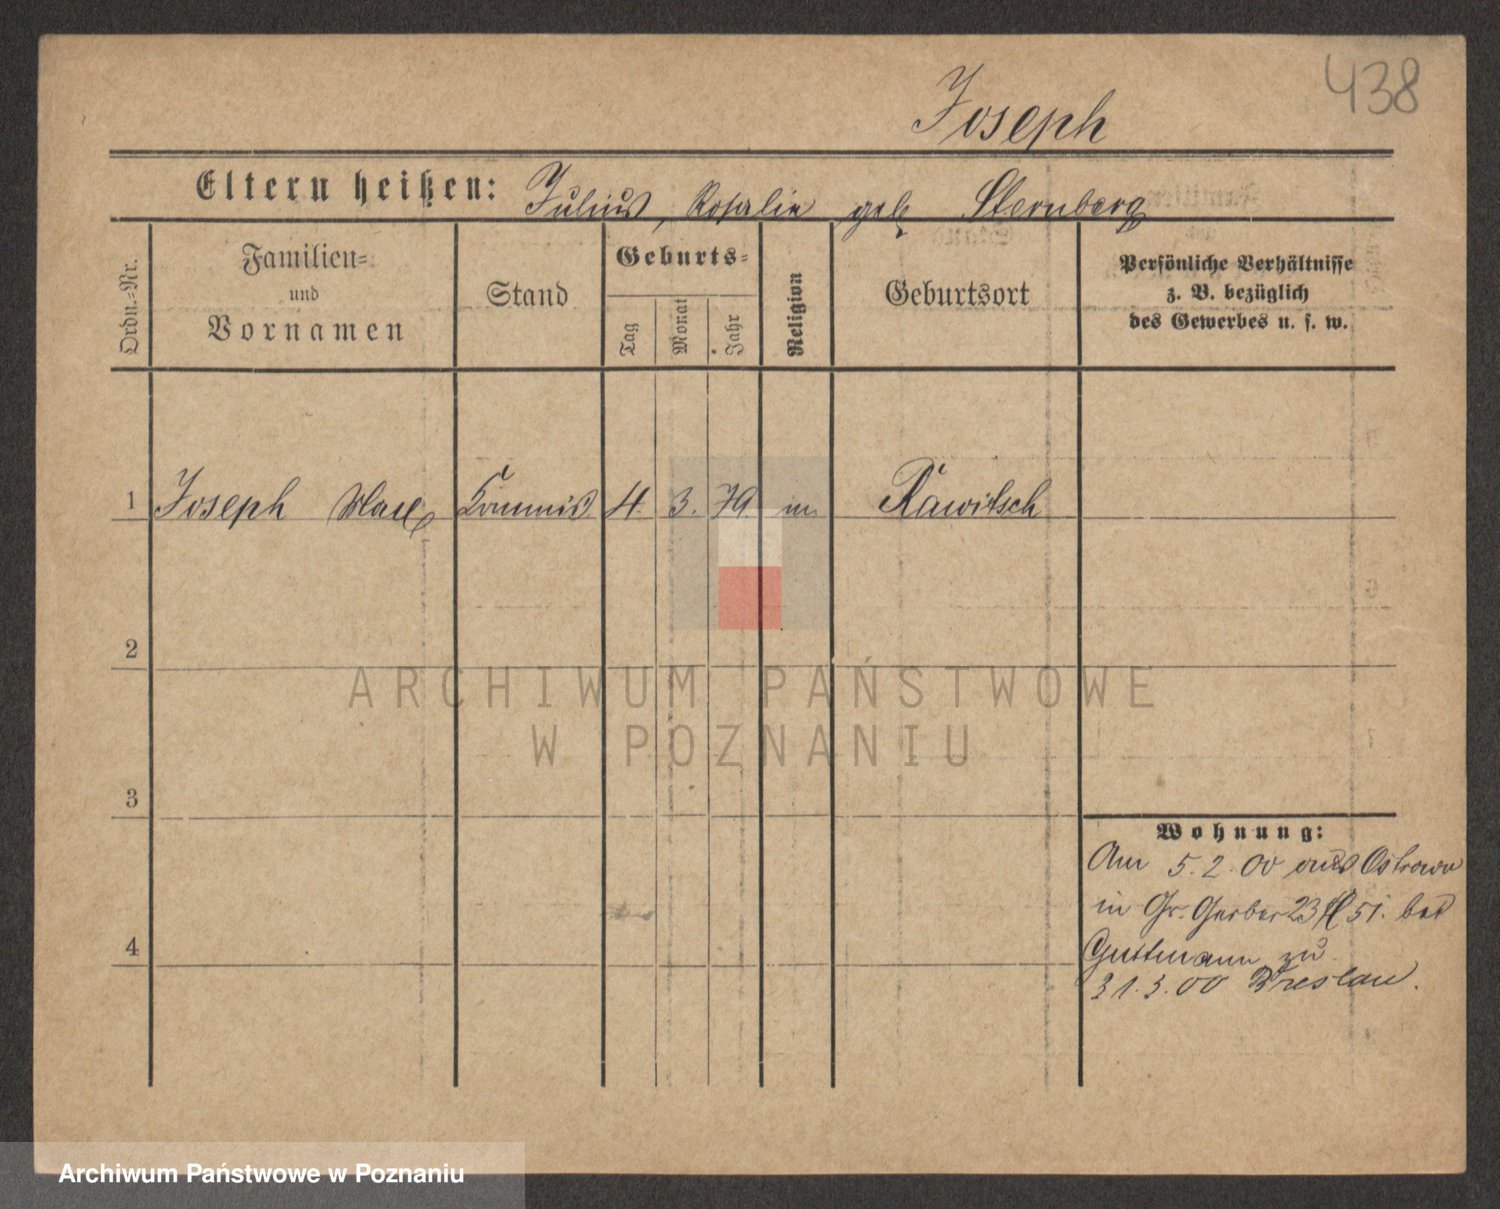 438
Joseph
Eltern heißen: Julius, Rosalie geb Sternberg
Ordn.=Nr.
Familien=
und
Vornamen
Stand
Geburts=
Tag
Monat
Jahr
Religion
Geburtsort
Persönliche Verhältnisse
z. B. bezüglich
des Gewerbes u. s. w.
1 Joseph Max Commis 4. 3. 79. m Rawitsch
2
3
4
Wohnung:
Am 5.2.00 aus Ostrowo
in Gr. Gerber 23 51. bei
Guttmann zu
31.3.00 Breslau.
ARCHIWUM PAŃSTWOWE
W POZNANIU
Archiwum Państwowe w Poznaniu